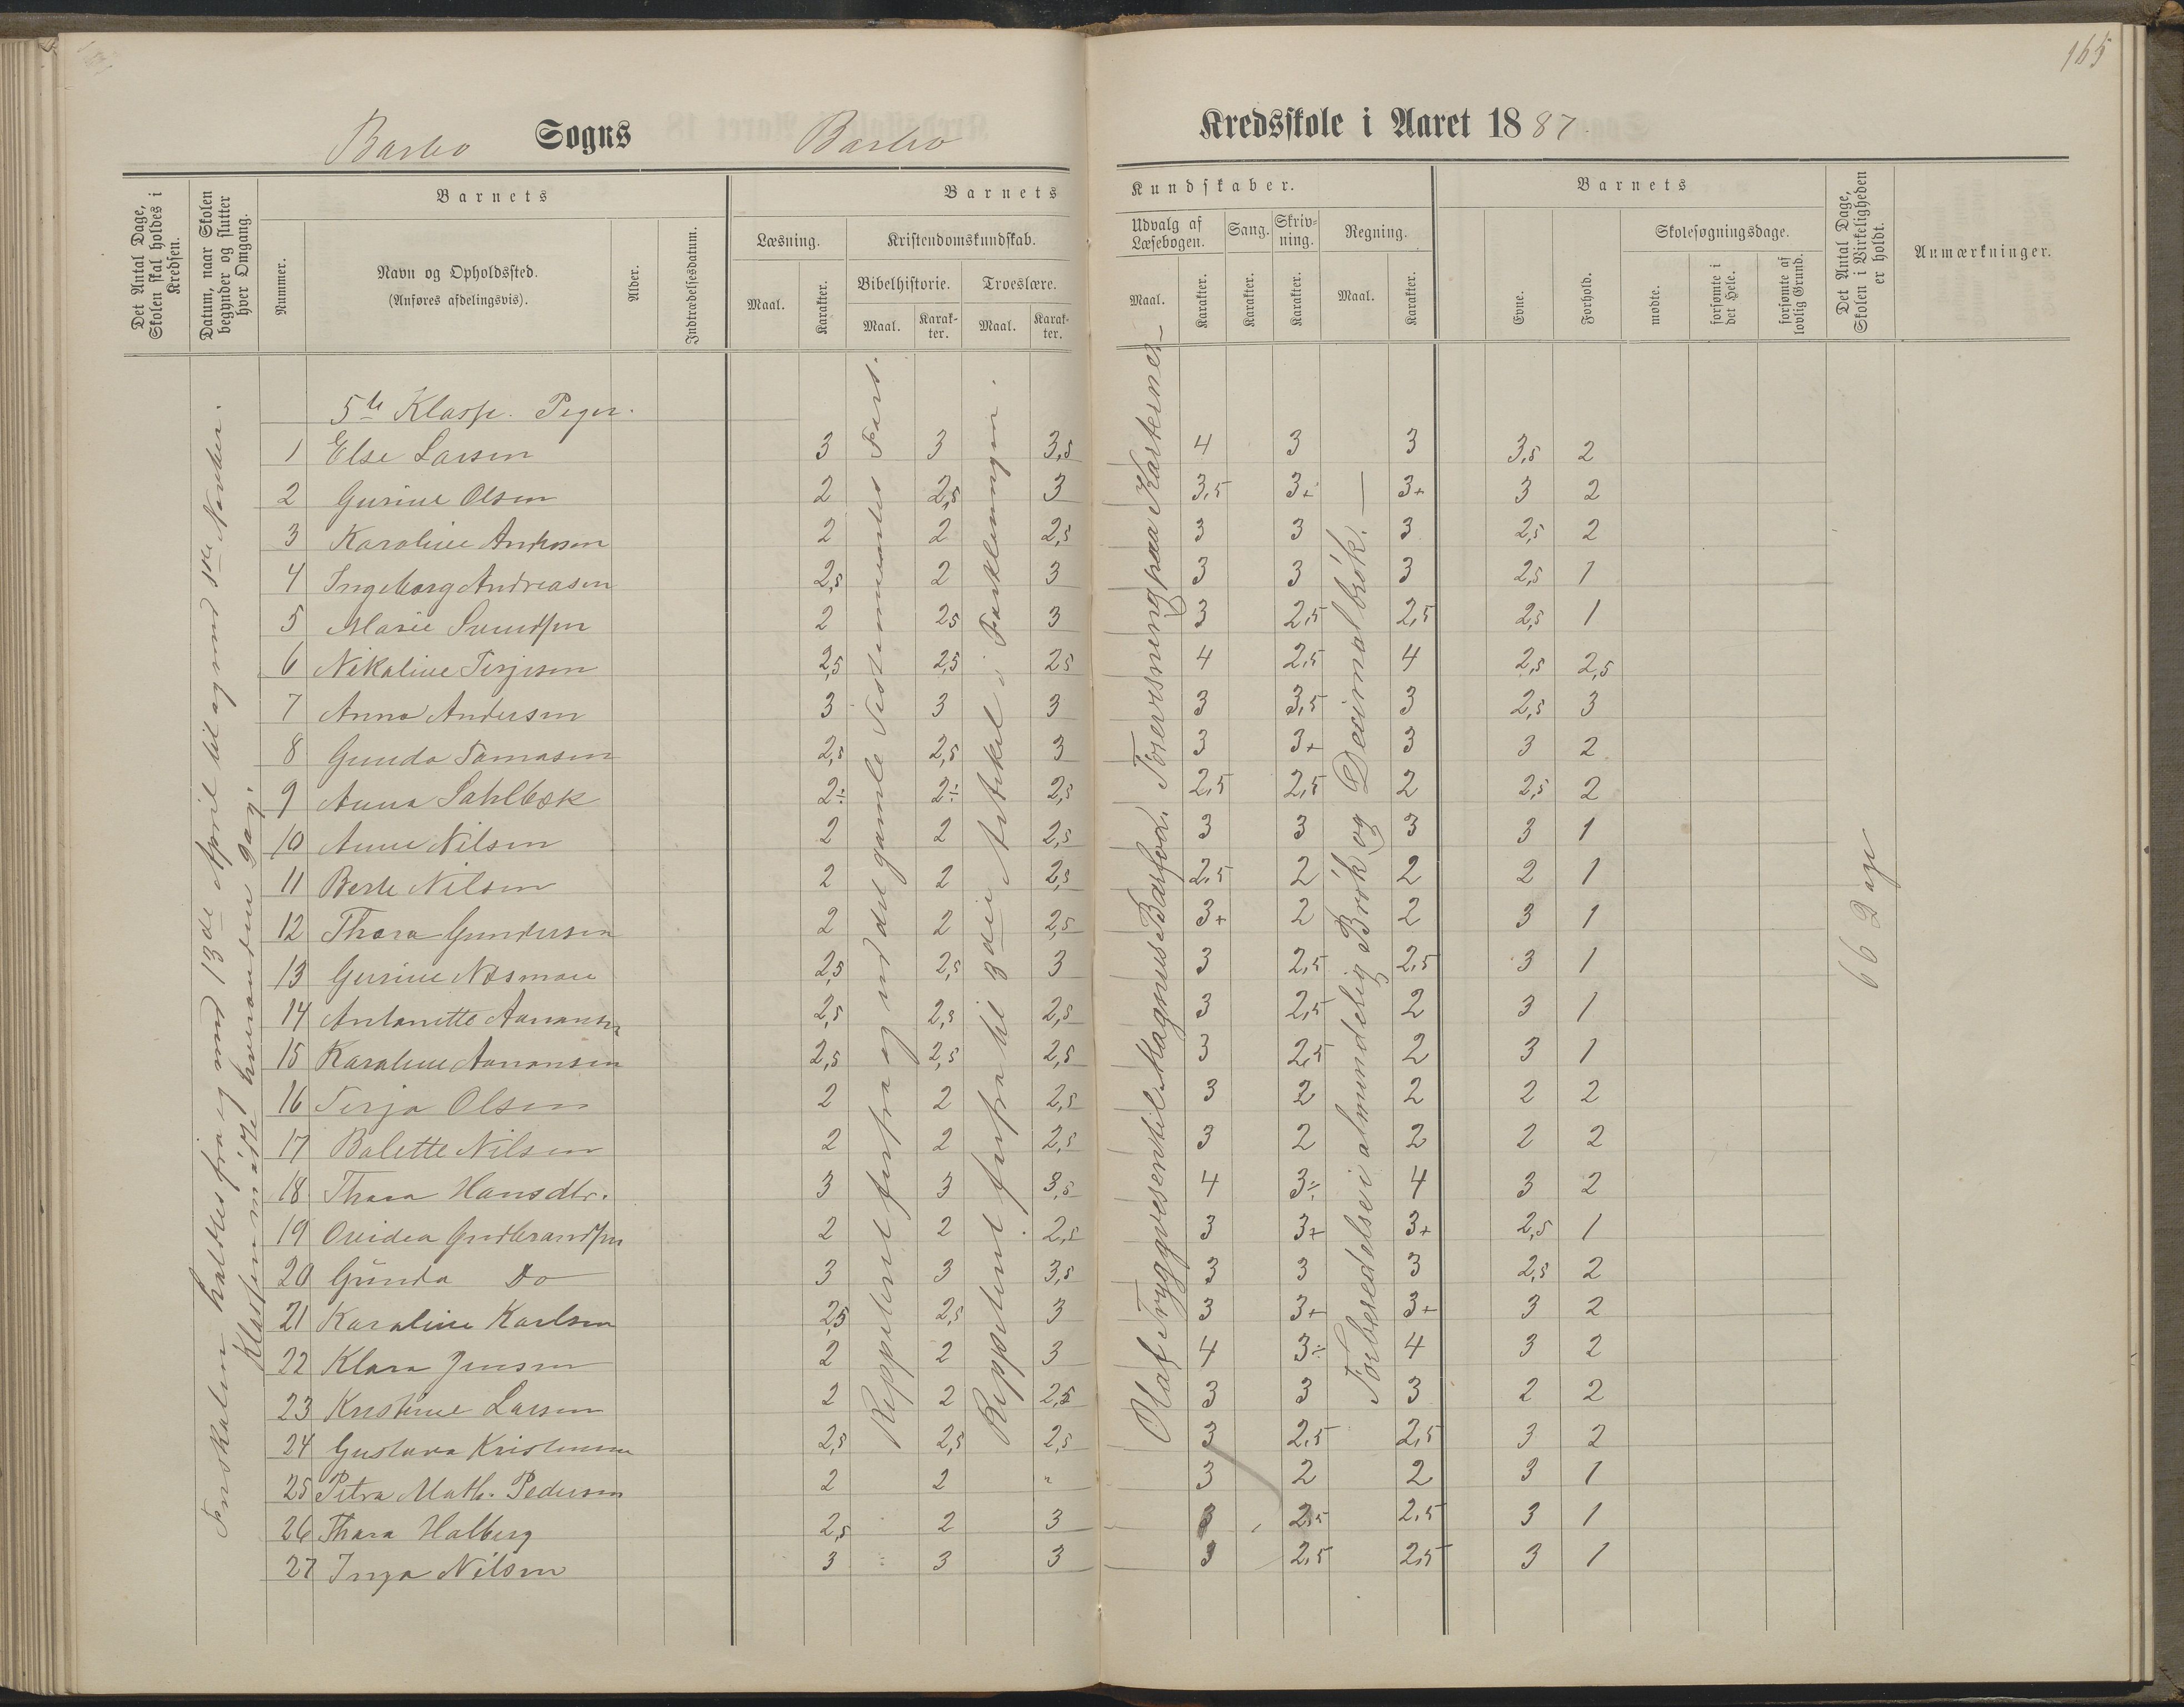 165
Barbo Sogns Barbo Kredsskole i Aaret 1887.
Det Antal Dage, Skolen skal holdes i Kredsen.
Datum, naar Skolen begynder og slutter hver Omgang.
Nummer.
Barnets
Navn og Opholdssted.
(Anføres afdelingsvis).
Alder.
Indtrædelsesdatum.
Barnets Kundskaber.
Læsning.
Maal.
Karakter.
Kristendomskundskab.
Bibelhistorie.
Maal.
Karakter.
Troeslære.
Maal.
Karakter.
Udvalg af Læsebogen.
Maal.
Karakter.
Sang.
Karakter.
Skrivning.
Karakter.
Regning.
Maal.
Karakter.
Barnets
Evne.
Forhold.
Skolesøgningsdage.
mødte.
forsømte i det Hele.
forsømte af lovlig Grund.
Det Antal Dage, Skolen i Virkeligheden er holdt.
Anmærkninger.
5te Klasse. Piger.
1 Else Larsen 3 3 3,5 4 3 3 3,5 2
2 Gurine Olsen 2 2,5 3 3,5 3+ 3+ 3 2
3 Karoline Andersen 2 2 2,5 3 3 3 2,5 2
4 Ingeborg Andreasen 2,5 2 3 3 3 3 2,5 1
5 Marie Svendsen 2 2,5 3 3 2,5 2,5 2,5 1
6 Nikoline Terjesen 2,5 2,5 2,5 4 2,5 4 2,5 2,5
7 Anna Andersen 3 3 3 3 3,5 3 2,5 3
8 Gunda Tomasen 2,5 2,5 3 3 3+ 3 3 2
9 Anna Sahlbæk 2÷ 2÷ 2,5 2,5 2,5 2 2,5 2
10 Anne Nilsen 2 2 2,5 3 3 3 3 1
11 Berte Nilsen 2 2 2,5 2,5 2 2 2 1
12 Thora Gundersen 2 2 2,5 3+ 2 2 3 1
13 Gurine Næsmoen 2,5 2,5 3 3 2,5 2,5 3 1
14 Antonette Aanonsen 2,5 2,5 2,5 3 2,5 2 3 1
15 Karoline Aanonsen 2,5 2,5 2,5 3 2,5 2 3 1
16 Terja Olsen 2 2 2,5 3 2 2 2 2
17 Bolette Nilsen 2 2 2,5 3 2 2 2 2
18 Thora Hansdtr. 3 3 3,5 4 3÷ 4 3 2
19 Ovidea Gudbrandsen 2 2 2,5 3 3+ 3+ 2,5 1
20 Gunda Do 3 3 3,5 3 3 3 2,5 2
21 Karoline Karlsen 2,5 2,5 3 3 3+ 3+ 3 2
22 Klara Jensen 2 2 3 4 3÷ 4 3 2
23 Kristine Larsen 2 2 2,5 3 3 3 2 2
24 Gustava Kristensen 2,5 2,5 2,5 3 2,5 2,5 3 2
25 Petra Math. Pedersen 2 2 " 3 2 2 3 1
26 Thora Halberg 2,5 2 3 3 2,5 2,5 3 1
27 Inga Nilsen 3 3 3 3 2,5 2,5 3 1
Skolen holdtes fra og med 13de April til og med
Klassen mødte hveranden Dag.
Reppeteret forfra og ud det gamle Testamentet
Reppeteret forfra til 3die Artikel i Forklaringen.
Olaf Tryggvesen til Magnus Barfod. Forevisning paa Karterne.
Forberedelse i almindelig Brøk og Decimalbrøk.
66 Dage